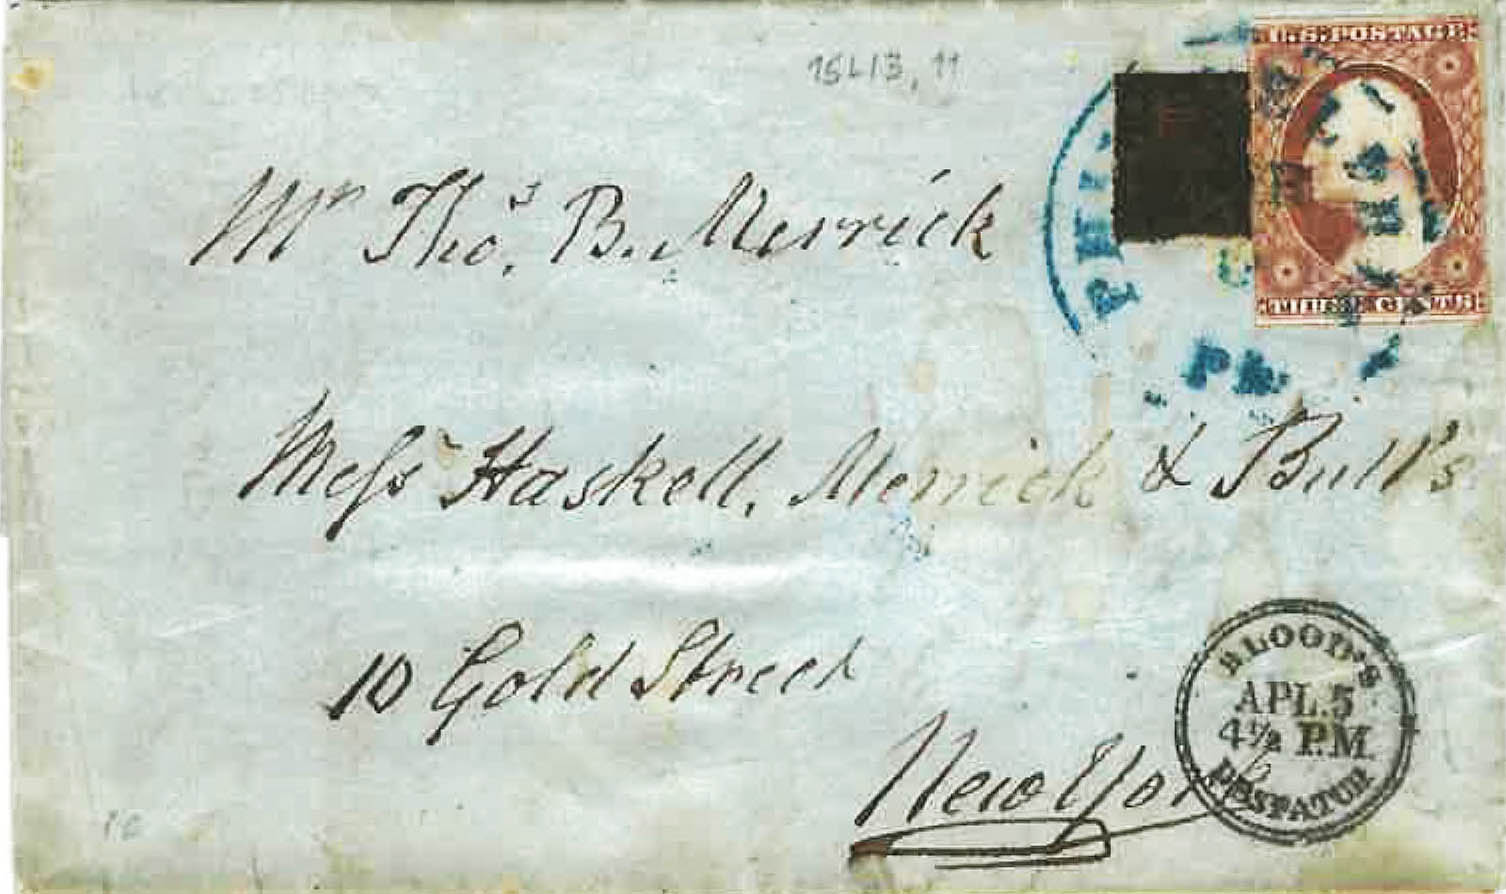 15L13, 11
U.S. POSTAGE
THREE CENTS
PHI
Mr Thos. B. Merrick
Messrs Haskell, Merrick & Bull's
10 Gold Street
New York
BLOOD'S
APL.5
4½ P.M.
DESPATCH